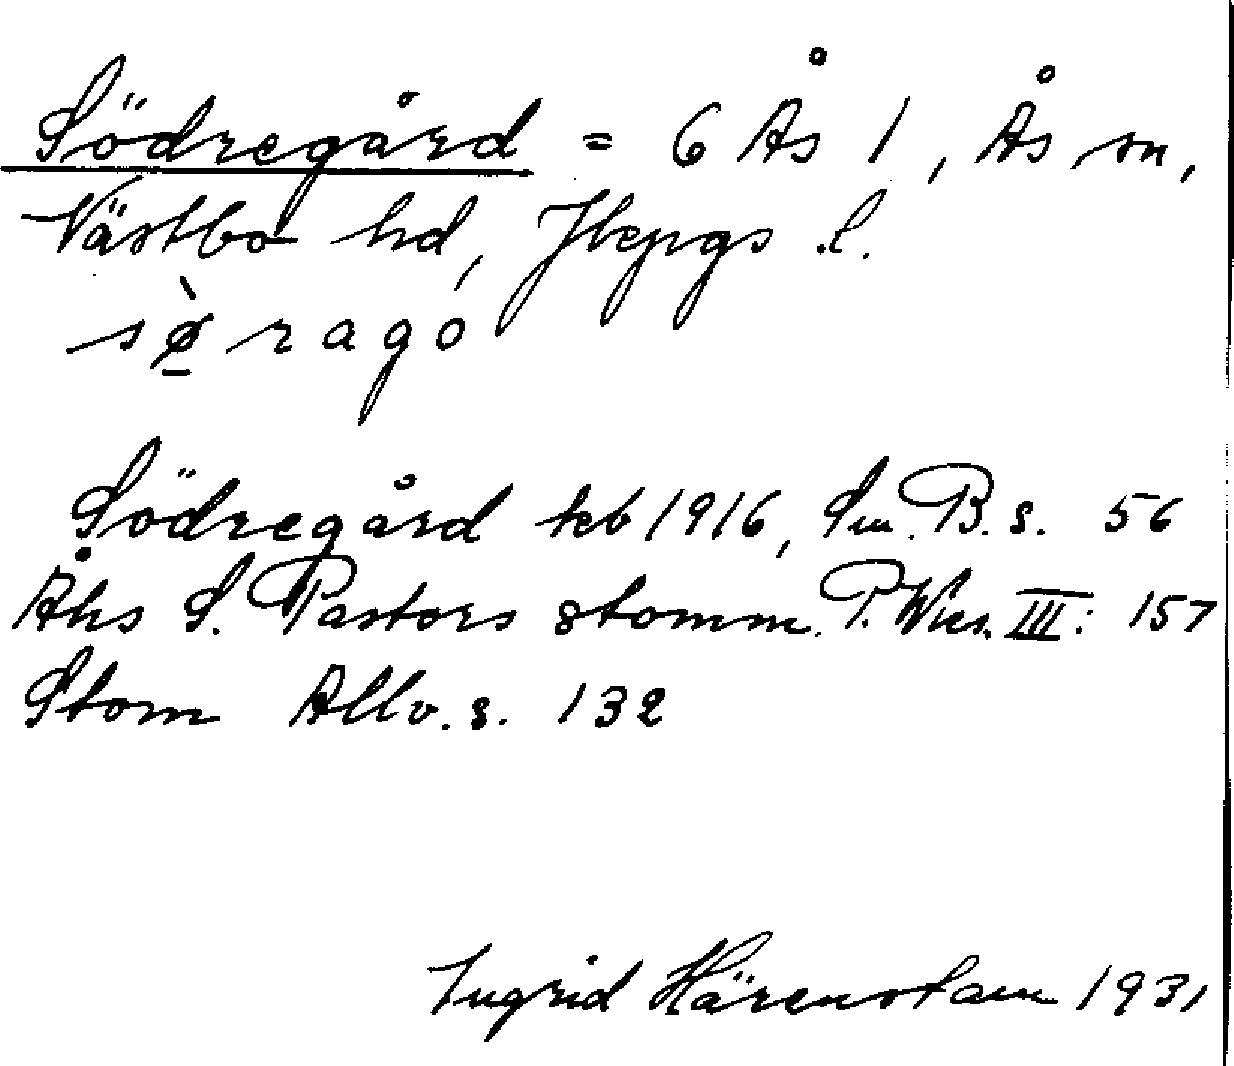 Södregård = 6 Ås 1, Ås sn,
Västbo hd, Jkpgs l.
sø̱̀ragó
Södregård teb 1916, Sm. B. s. 56
Åhs S. Pastors stomm. P. Wies. III: 157
Stom Allv. s. 132
Ingrid Härenstam 1931